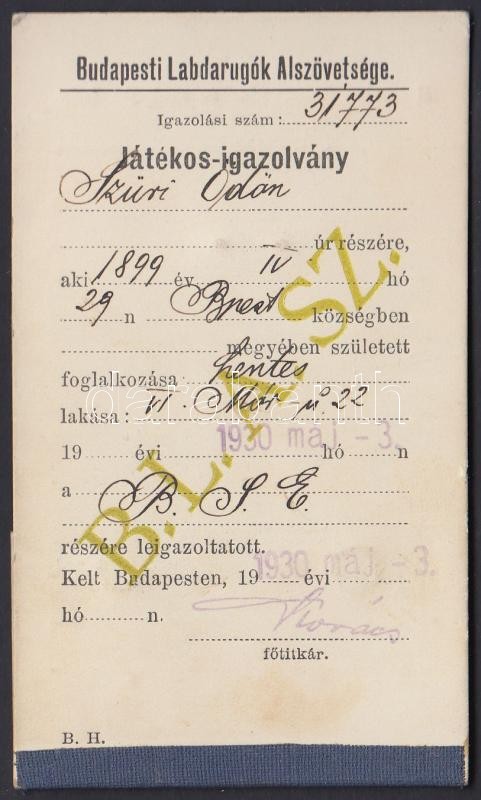 Budapesti Labdarugók Alszövetsége.
Igazolási szám: 31773
Játékos-igazolvány
Szűri Ödön
úr részére,
aki 1899 év IV hó
29 n Bpest községben
megyében született
foglalkozása hentes
lakása: VI Mór u 22
19 évi 1930 máj - 3. hó n
a B. S. E.
részére leigazoltatott.
Kelt Budapesten, 19 évi 1930 máj - 3.
hó n.
Kovács
főtitkár.
B. H.
B.L.A.SZ.
darabanth